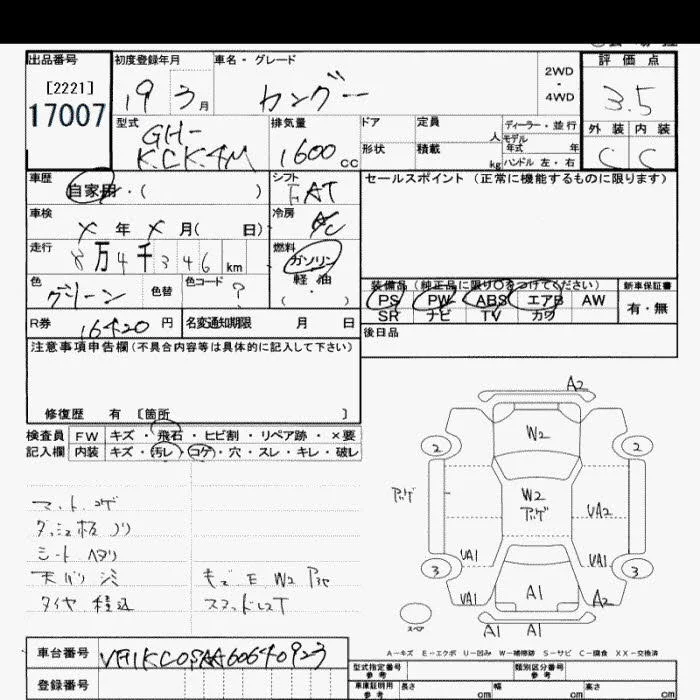 出品番号
[2221]
17007
初度登録年月
19 3月
車名・グレード
カングー
2WD
・
4WD
評価点
3.5
外装 内装
C C
型式
GH-
KCK4M
排気量
1600cc
ドア
定員
人
形状
積載
kg
ディーラー・並行
モデル
年式 年
ハンドル 左・右
車歴
自家用・( )
シフト
FAT
セールスポイント (正常に機能するものに限ります)
車検
X 年 X 月( 日)
冷房
AC
走行
8万4千346km
燃料
ガソリン
軽油
( ・ )
色
グリーン
色替
色コード
?
装備品 (純正品に限り〇をつけてください)
PS PW ABS エアB AW
SR ナビ TV カワ
新車保証書
有・無
R券 16420円
名変通知期限 月 日
後日品
注意事項申告欄(不具合内容等は具体的に記入して下さい)
修復歴 有 [箇所 ]
検査員 FW キズ・飛石・ヒビ割・リペア跡・×要
記入欄 内装 キズ・汚レ・コゲ・穴・スレ・キレ・破レ
マット コゲ
ダッシュ板 ノリ
シート ヘタリ
天バリ シミ
タイヤ 積込
キズ E W2
A2
W2
2 2
アッゲ
W2
アッゲ
UA2
UA1 UA1
3 3
UA1 A1 A2
スペア
A1 A1
A-キズ E-エクボ U-凹み W-補修跡 S-サビ C-腐食 XX-交換済
車台番号 VF1KC0SAA60640923
登録番号
型式指定番号
参考
類別区分番号
参考
車庫証明用
参考
長さ cm 幅 cm 高さ cm